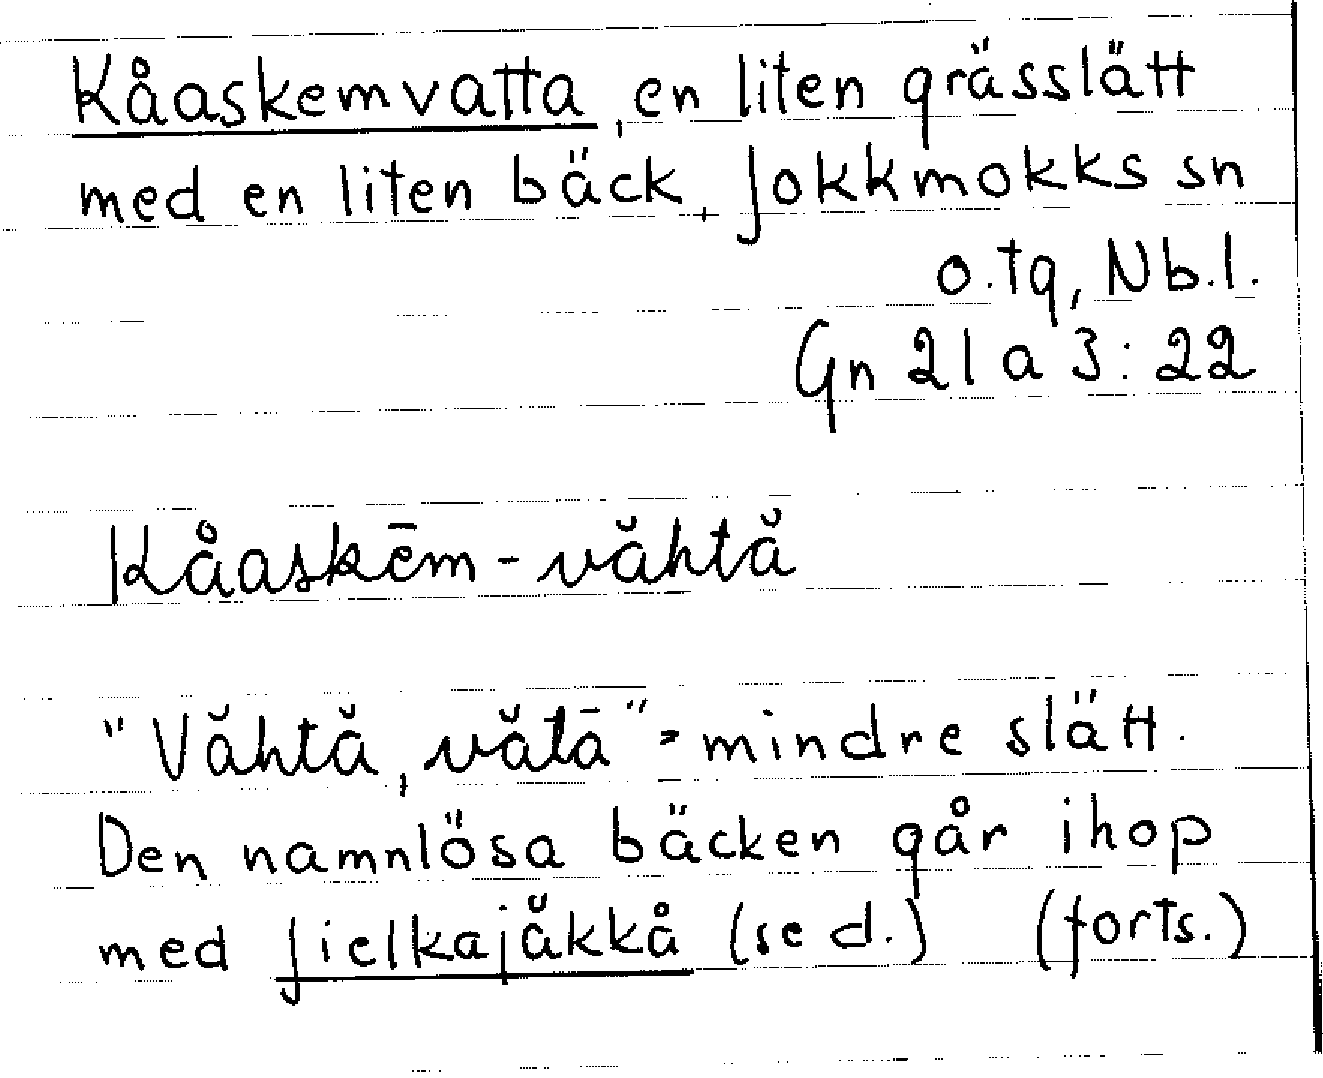 Kåaskemvatta, en liten grässlätt
med en liten bäck, Jokkmokks sn
o. tg, Nb. l.
Gn 21 a 3:22
Kåaskēm - văhtă
"Văhtă, vătā" = mindre slätt.
Den namnlösa bäcken går ihop
med Jielkajåkkå (se d.) (forts.)